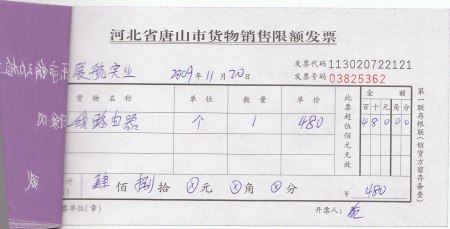 河北省唐山市货物销售限额发票
发票代码113020722121
展航实业 2009年11月20日 发票号码03825362
货物名称 单位 数量 单价 金额
百十元角分
线路由器 个 1 480 48000
此票超伍佰元无效
肆佰捌拾⊗元⊗角⊗分 ¥480
票单位(章) 开票人:
第一联存根联(销货方留存备查)